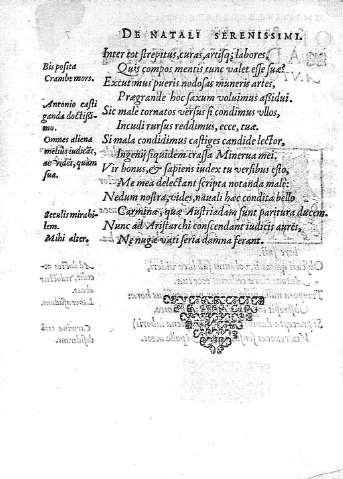 DE NATALI SERENISSIMI.
Inter tot strepitus, curas, artisq; labores,
Bis posita
Quis compos mentis tunc valet esse suæ?
Crambe mors.
Excutimus pueris nodosas muneris artes,
Prægrande hoc saxum volvimus assidui.
Antonio casti
Sic male tornatos versus si condimus vllos,
ganda doctissi-
mo.
Incudi rursus reddimus, ecce, tuæ.
Omnes aliena
Si mala condidimus castiges candide lector,
melius iudicãt,
Ingenij siquidem crassa Minerva mei.
ac vidẽt, quàm
sua.
Vir bonus, & sapiens iudex tu versibus esto,
Me mea delectant scripta notanda malè:
Nedum nostra, vides, nauali hæc condita bello
Seculis mirabi-
Carmina, quæ Austriadam sunt paritura ducem.
lem.
Nunc ad Aristarchi conscendant iudicis aures,
Mihi alter.
Ne nugæ vati seria damna ferant.